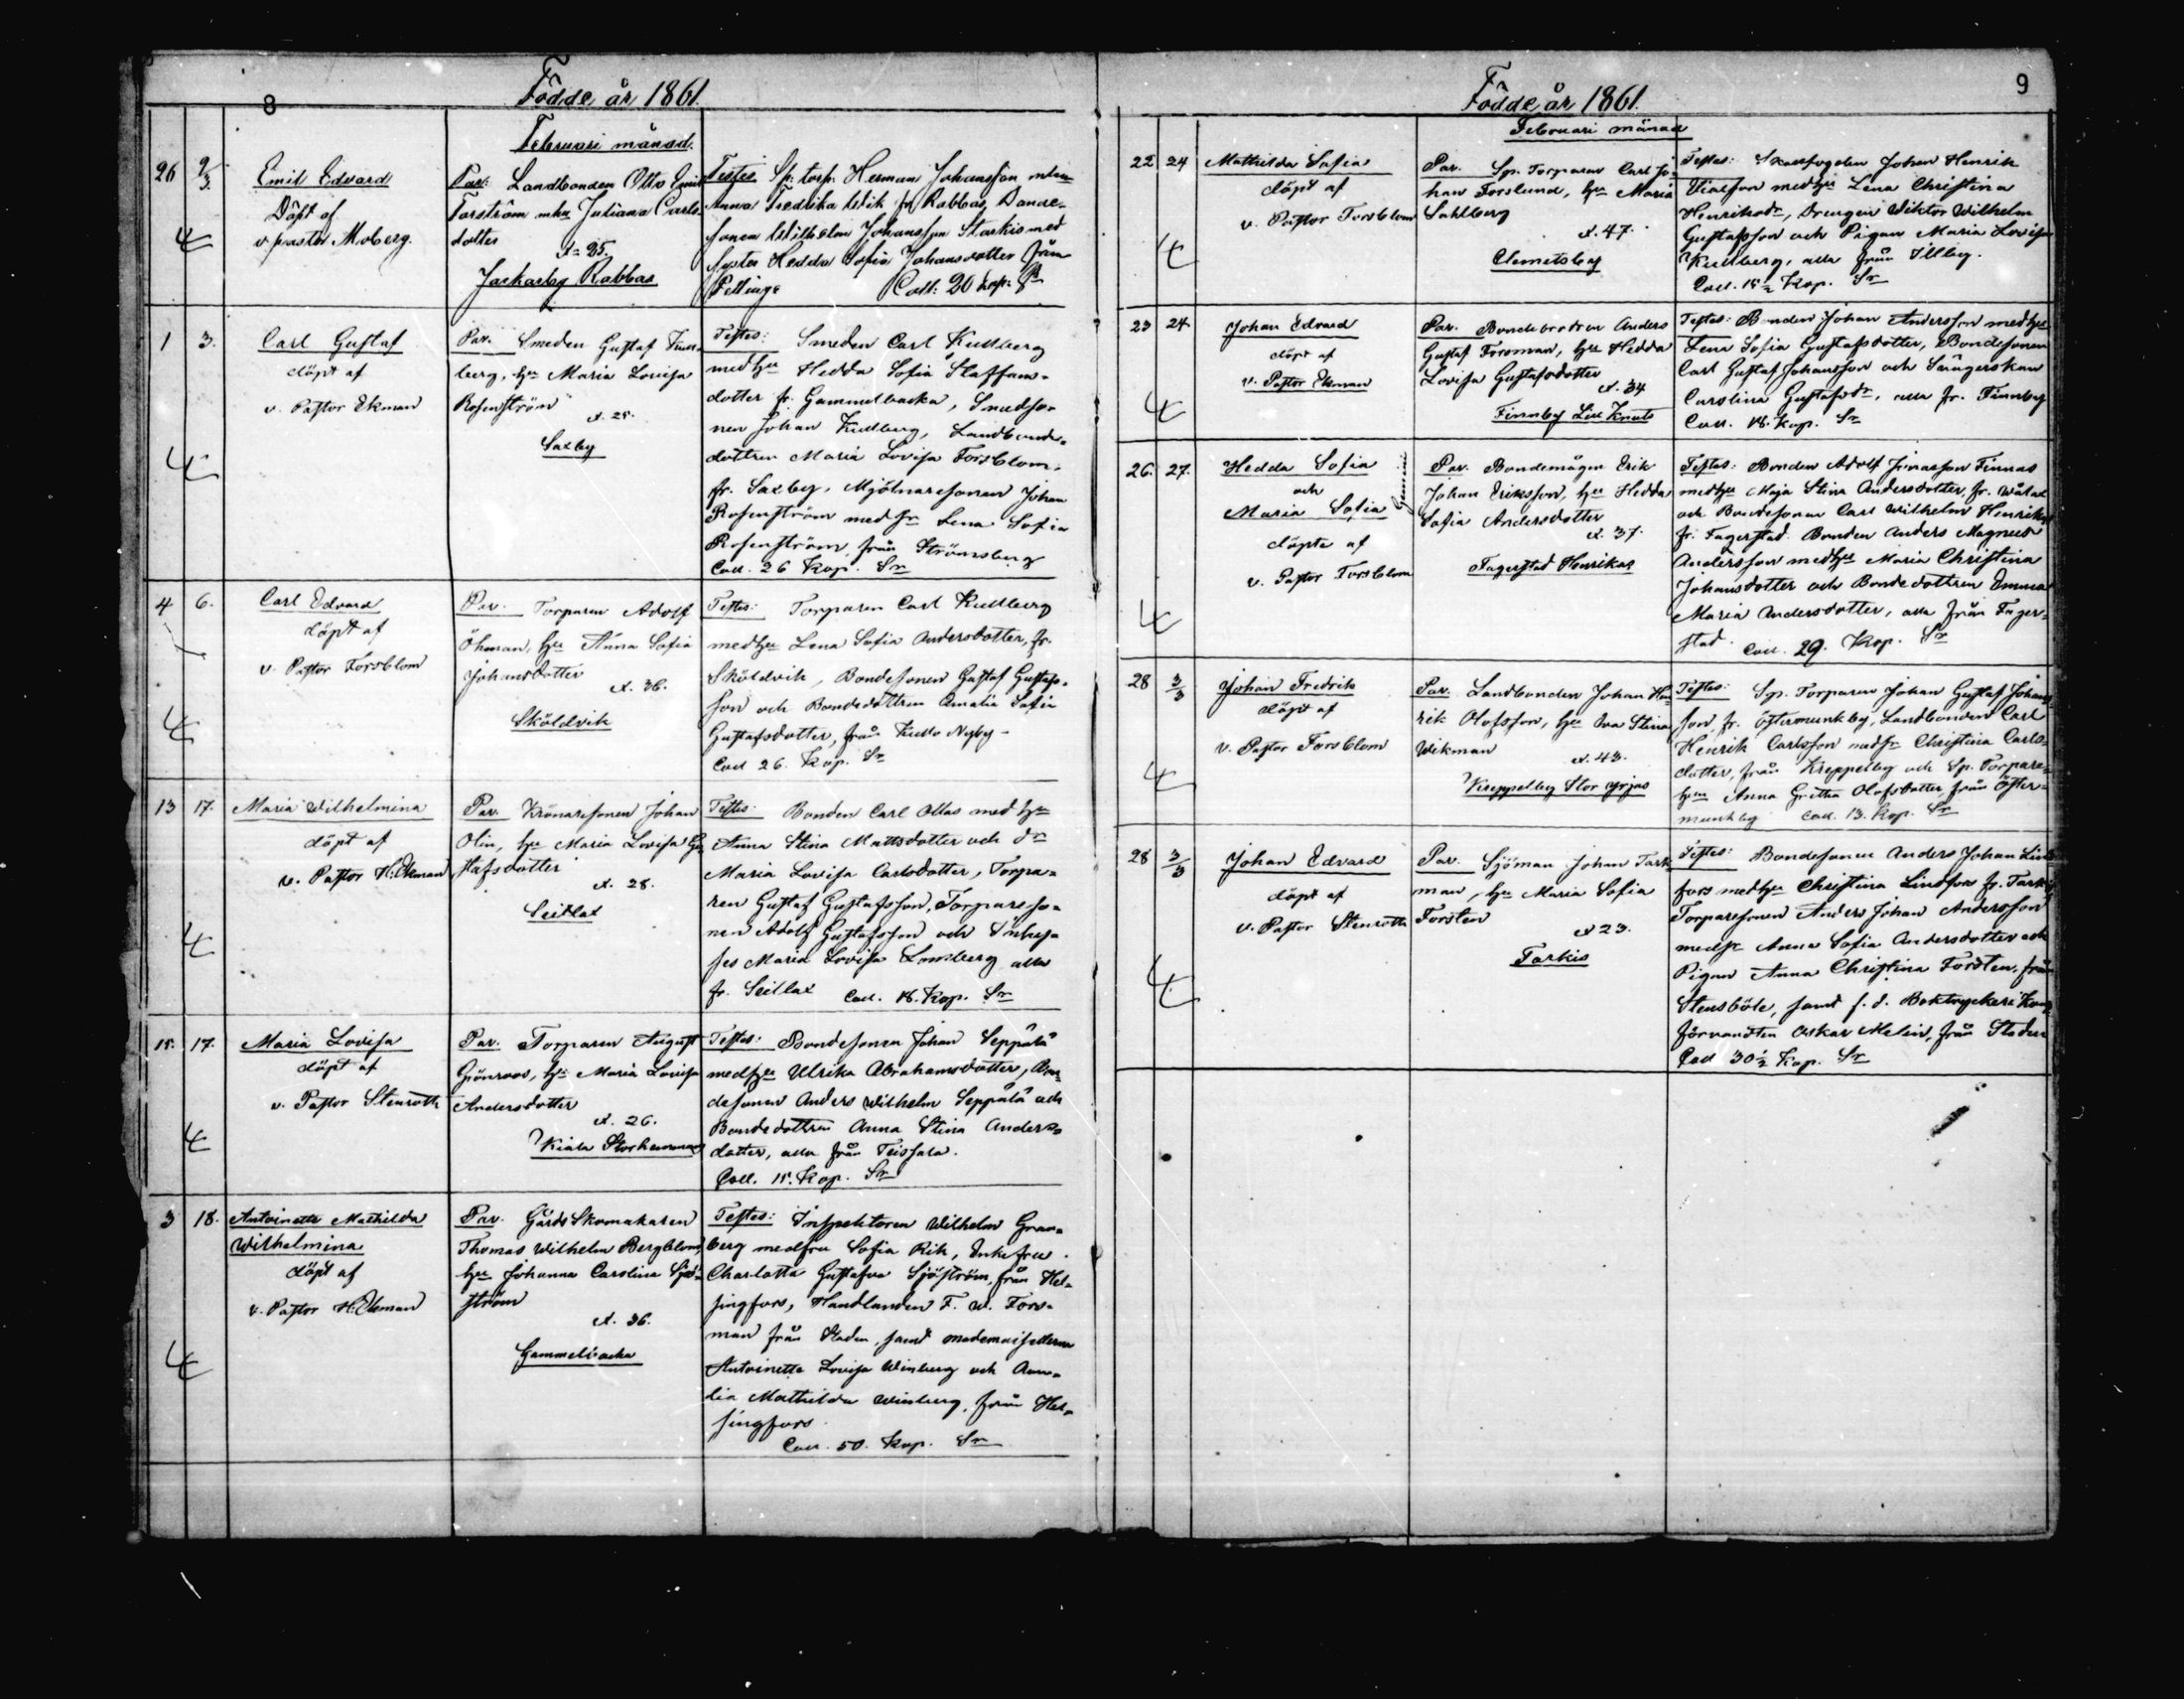 8
Födde år 1861.
Februari månad.
26 9/3. Emil Edvard
Döpt af
v pastor Moberg.
Par: Landbonden Otto Emil
Forström mhu Juliana Carls-
dotter
æ 25.
Jackarby Rabbas
Testes Sp: torp: Herman Johansson mhu
Anna Fredrika Wik fr Rabbas, Bonde-
sonen Wilhelm Johansson Starkis med
syster Hedda Sofia Johansdotter från
Pellinge Coll: 20 kop: Sr
1 3. Carl Gustaf
döpt af
v. Pastor Ekman
Par. Smeden Gustaf Kull-
berg, hu Maria Lovisa
Rosenström
æt. 25.
Saxby
Testes: Smeden Carl Kullberg
med hu Hedda Sofia Staffans-
dotter fr. Gammelbacka, Smedso-
nen Johan Kullberg, Landbonde-
dottren Maria Lovisa Forsblom,
fr. Saxby, Mjölnaresonen Johan
Rosenström med sr Lena Sofia
Rosenström, från Strömsberg
Coll. 26 Kop. Sr
4 6. Carl Edvard
döpt af
v. Pastor Forsblom
Par. Torparen Adolf
Öhman, hu Anna Sofia
Johansdotter
æt. 36.
Sköldvik
Testes: Torparen Carl Kullberg
med hu Lena Sofia Andersdotter, fr.
Sköldvik, Bondesonen Gustaf Gustafs-
son och Bondedottren Amalia Sofia
Gustafsdotter, från Kullo Nyby-
Coll 26. Kop. Sr
13 17. Maria Wilhelmina
döpt af
v. Pastor H. Ekman
Par. Krönaresonen Johan
Olin, hu Maria Lovisa Gu-
stafsdotter
æt. 28.
Seitlax
Testes: Bonden Carl Ollas med hu
Anna Stina Mattsdotter och dr
Maria Lovisa Carlsdotter, Torpa-
ren Gustaf Gustafsson, Torpareso-
nen Adolf Gustafsson och Inhys-
ses Maria Lovisa Lönnberg alla
fr. Seitlax Coll. 18. Kop. Sr
15. 17. Maria Lovisa
döpt af
v. Pastor Stenroth
Par. Torparen August
Grönroos, hu Maria Lovisa
Andersdotter
æt. 26.
Kiala
Testes: Bondesonen Johan Seppälä
med hu Ulrika Abrahamsdotter, Bon-
desonen Anders Wilhelm Seppälä och
Bondedottren Anna Stina Anders-
dotter, alla från Teissala.
Coll. 15. Kop. Sr
3 18. Antoinette Mathilda
Wilhelmina
döpt af
v. Pastor H. Ekman
Par. Gårds Skomakaren
Thomas Wilhelm Bergblom,
hu Johanna Carolina Sjö-
ström
æt. 36.
Gammelbacka
Testes: Inspektoren Wilhelm Gran-
berg med fru Sofia Rik, Enkefru
Charlotta Gustafva Sjöström, från Hel-
singfors, Handlanden F. W. Fors-
man från Staden, samt mademoisellerna
Antoinette Lovisa Winberg och Ama-
lia Mathilda Winberg, från Hel-
singfors
Coll. 50. Kop. Sr
9
Födde år 1861.
Februari månad
22. 24 Mathilda Sofia
döpt af
v. Pastor Forsblom
Par. Sp. Torparen Carl Jo-
han Forslund, hu Maria
Sahlberg
æt. 47.
Clemetsby
Testes: Skallfogden Johan Henrik
med hu Lena Christina
Henriksdr, Drengen Viktor Wilhelm
Gustafsson och Pigan Maria Lovisa
Kullberg, alla från Illby.
Coll. 15 1/2 Kop. Sr
23 24. Johan Edvard
döpt af
v. Pastor Ekman
Par. Bondebrodren Anders
Gustaf Forsman, hu Hedda
Lovisa Gustafsdotter
æt. 34
Finnby Lill Knuts
Testes: Bonden Johan Andersson med hu
Lena Sofia Gustafsdotter, Bondesonen
Carl Gustaf Johansson och Sångerskan
Carolina Gustafsdr, alla fr. Finnby
Coll. 18. Kop. Sr
26. 27. Hedda Sofia
och
Maria Sofia
gemelli
döpte af
v. Pastor Forsblom
Par. Bondemågen Erik
Johan Eriksson, hu Hedda
Sofia Andersdotter
æt. 37.
Fagerstad Henrikas
Testes: Bonden Adolf Jonasson Finnas
med hu Maja Stina Andersdotter, fr. Wålax
och Bondesonen Carl Wilhelm Henriksson
fr. Fagerstad. Bonden Anders Magnus
Andersson med hu Maria Christina
Johansdotter och Bondedottren Emma
Maria Andersdotter, alla från Fager-
stad. Coll. 29. Kop. Sr
28 3/3 Johan Fredrik
döpt af
v. Pastor Forsblom
Par. Landbonden Johan Hen-
rik Olofsson, hu Eva Stina
Wikman
æt. 43.
Kreppelby Stor Yrjas
Testes: Sp. Torparen Johan Gustaf Johans-
son fr. Östermunkby, Landbonden Carl
Henrik Carlsson med sr Christina Carls-
dotter, från Kreppelby och Sp. Torpare-
hun Anna Gretha Olofsdotter från Öster-
munkby Coll. 13. Kop. Sr
28 3/3 Johan Edvard
döpt af
v. Pastor Stenroth
Par. Sjöman Johan Tark-
man, hu Maria Sofia
Forsten
æt 23.
Tarkis
Testes: Bondesonen Anders Johan Lind-
fors med hu Christina Lindfors fr. Tarkis,
Torparesonen Anders Johan Andersson
med sr Anna Sofia Andersdotter och
Pigan Anna Christina Forsten, från
Stensböle, samt f. d. Boktryckeri Konst-
förvandten Oskar Melin, från Staden
Coll 30 1/2 Kop. Sr